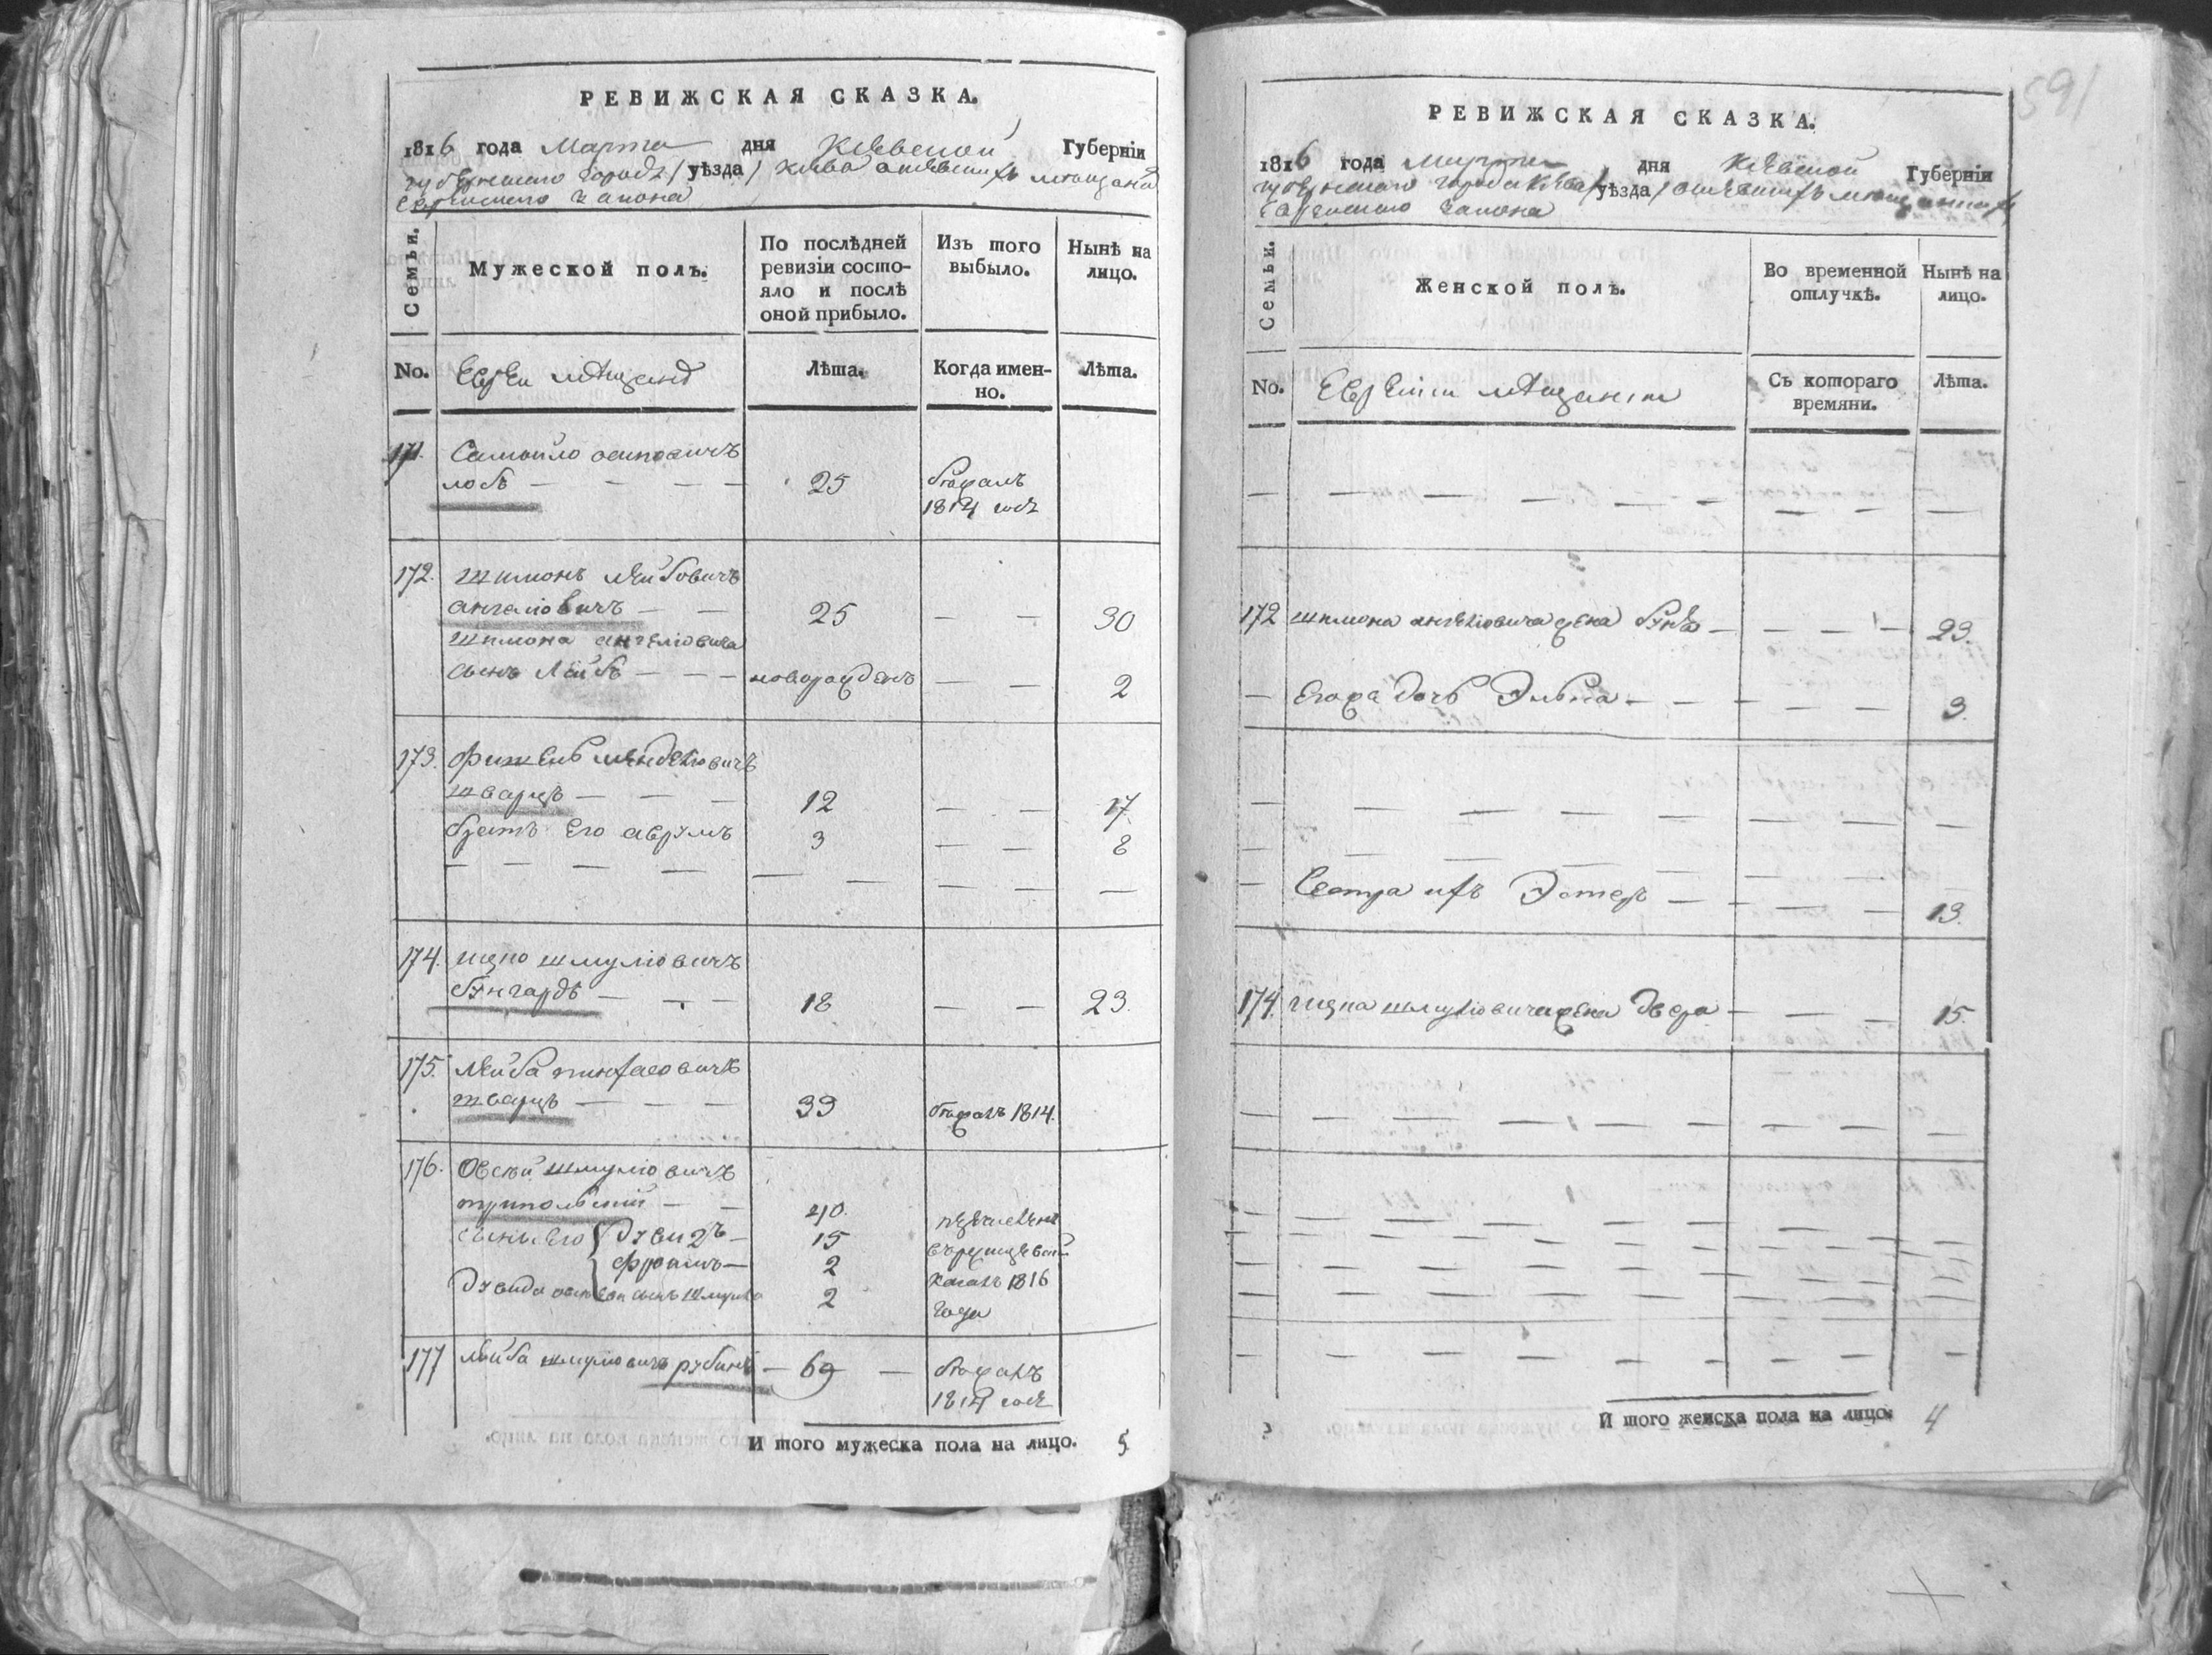 РЕВИЖСКАЯ СКАЗКА.
1816 года Марта дня Киевской Губернiи
губернского города уѣзда Киева мѣщанъ
еврейского закона
Семьи.
Мужеской полъ.
По послѣдней
ревизiи состо-
яло и послѣ
оной прибыло.
Изъ того
выбыло.
Нынѣ на
лицо.
No.
Евреи мѣщанѣ
Лѣта.
Когда имен-
но.
Лѣта.
171. Самойло осиповичъ
лобъ — — — — 25 бѣжалъ
1814 года
172. шимонъ лейбовичъ
ангеліовичъ — — 25 — — 30
шимона ангеліовича
сынъ Лейбъ — — — новорожденъ — — 2
173. фишель менделіовичъ
шварцъ — — — 12 — — 17.
братъ его аврумъ 3 — — 8
174. ицко шмуліовичъ
бѣнгардъ — — — 18 — — 23.
175. Лейба пинхасовичъ
шварцъ — — — 39 бѣжалъ 1814.
176. Овсѣй шмуліовичъ
трипольскій — — 40. перечисленъ
сыны его Дувидъ — 15
фроимъ — 2 кагалъ 1816
Дувида сынъ 2 года
177 Лейба шмуліовичъ рубинъ — 69 — бѣжалъ
1814 года
И того мужеска пола на лицо. 5
591
РЕВИЖСКАЯ СКАЗКА.
1816 года Марта дня Киевской Губернiи
губернского города Киева уѣзда
еврейского закона
Семьи.
Женской полъ.
Во временной
отлучкѣ.
Нынѣ на
лицо.
No.
Еврейки мѣщанки
Съ котораго
времяни.
Лѣта.
172 шимона ангеліовича жена — — — 23.
— Егожъ дочь Элька — — — — — 3.
— Сестра ихъ Эстеръ — — — — 13.
174. ицка шмуліовича жена Двера — — — 15.
И того женска пола на лицо. 4